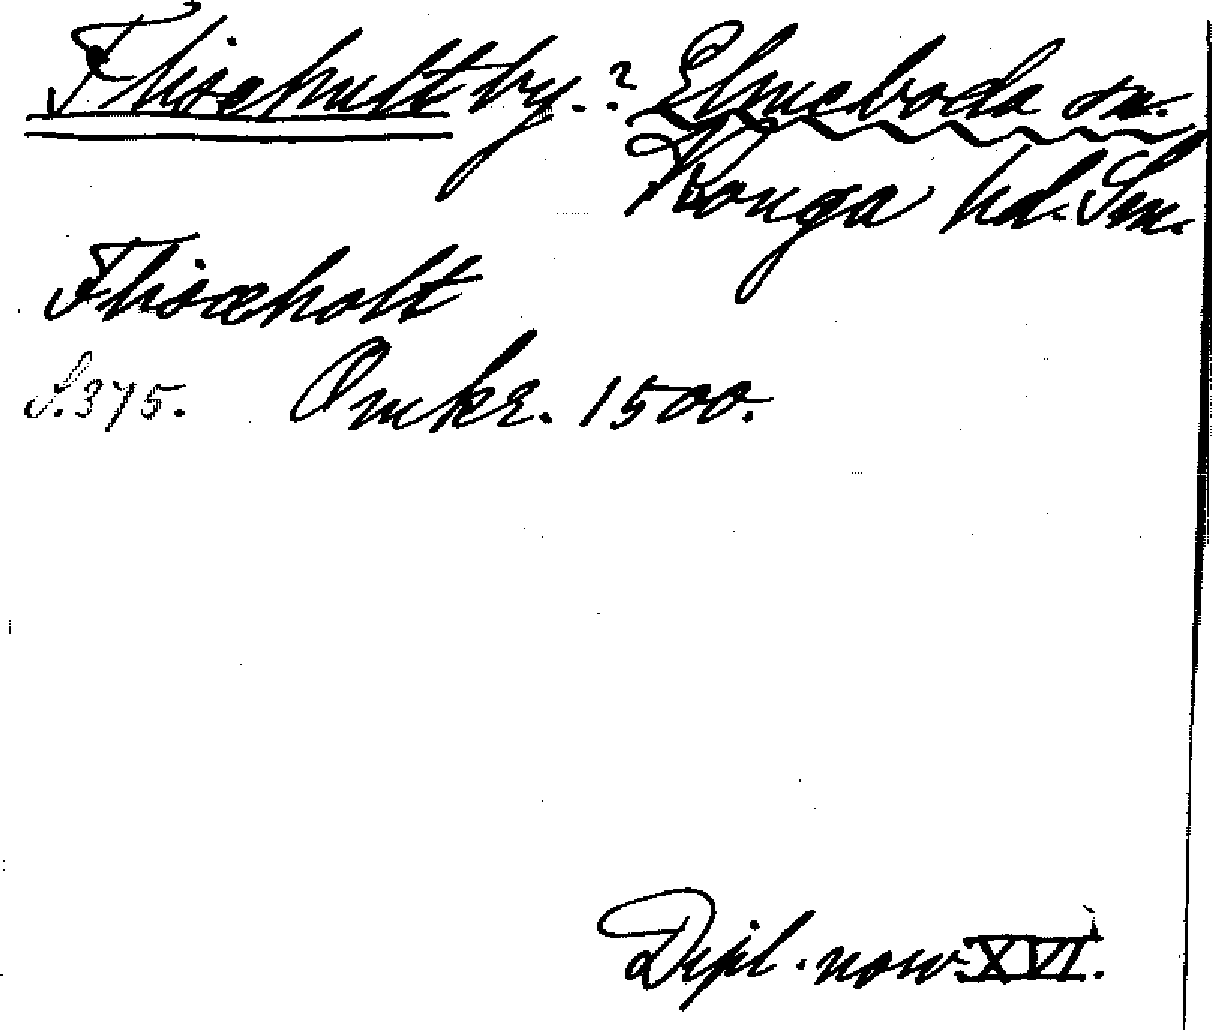 Flisehult by. ? Elmeboda sn.
Konga hd. Sm.
Flisæholt
S. 375. Omkr. 1500.
Dipl. norv. XVI.